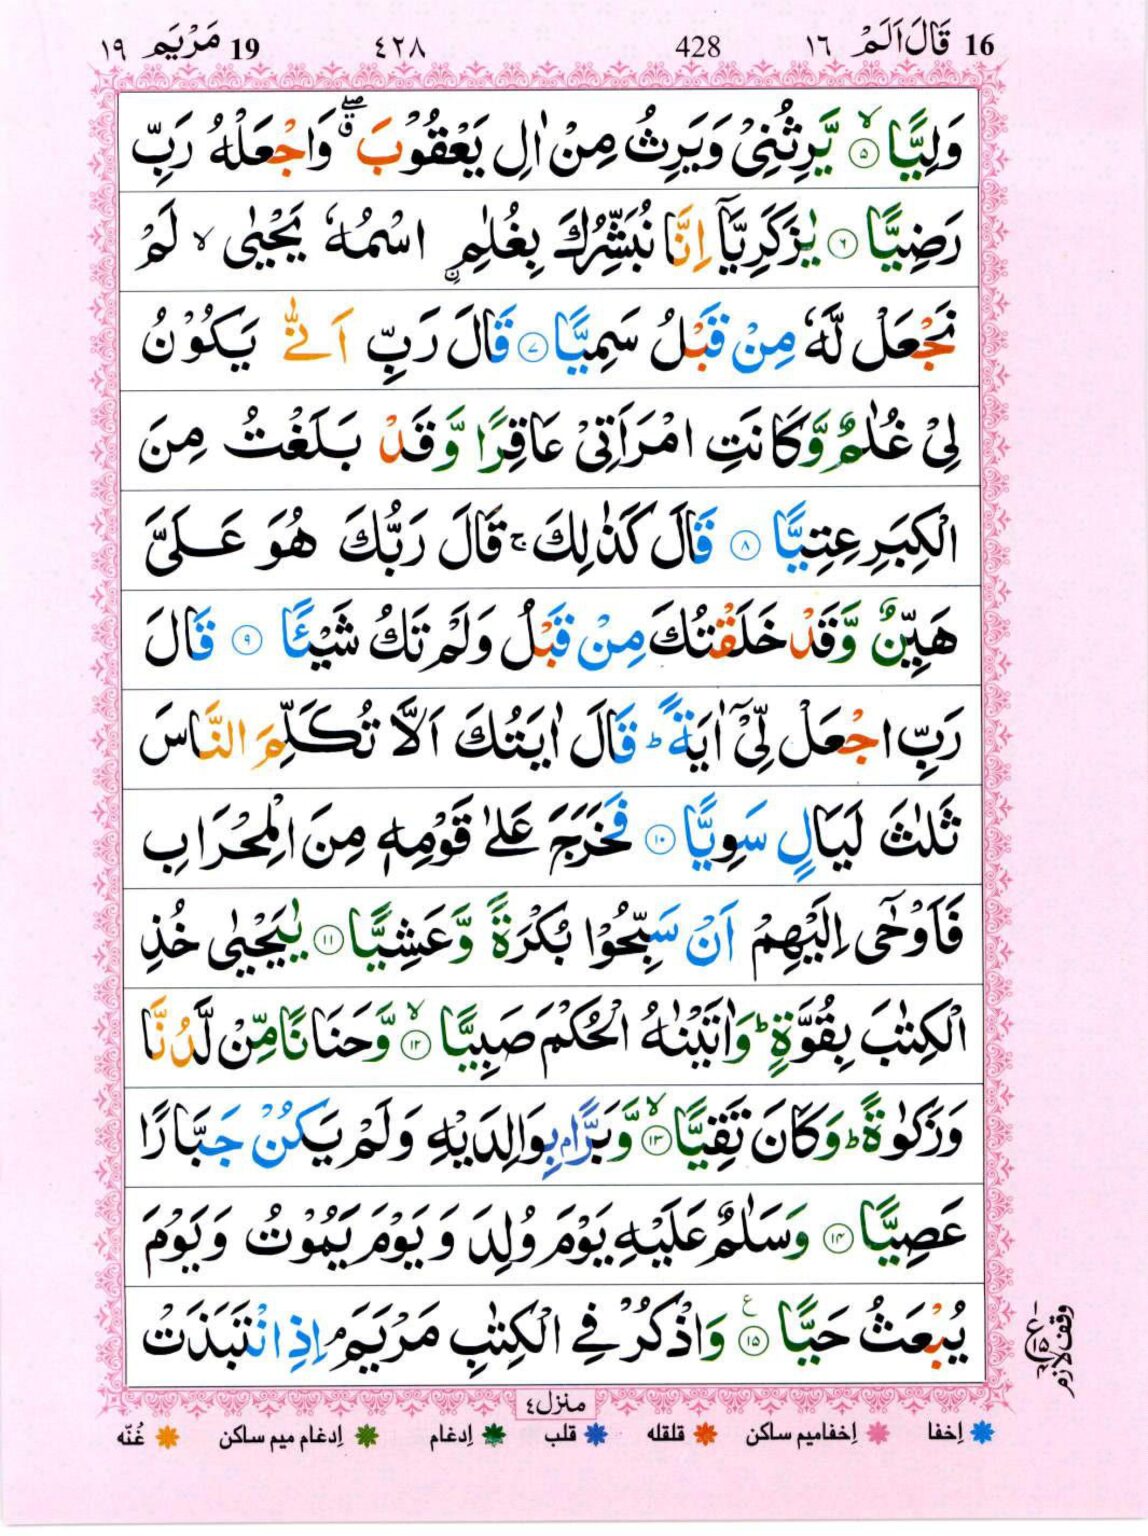 16 قَالَ اَلَمْ ١٦ 428 ٤٢٨ 19 مَرْيَم ١٩
وَلِيًّا ۙ‏﴿۵﴾ يَّرِثُنِىْ وَيَرِثُ مِنْ اٰلِ يَعْقُوْبَ ۖۗ وَاجْعَلْهُ رَبِّ
رَضِيًّا ﴿۶﴾ يٰزَكَرِيَّاۤ اِنَّا نُبَشِّرُكَ بِغُلٰمِ ۨاسْمُهٗ يَحْيٰى ۙ لَمْ
نَجْعَلْ لَّهٗ مِنْ قَبْلُ سَمِيًّا ﴿۷﴾ قَالَ رَبِّ اَنّٰى يَكُوْنُ
لِىْ غُلٰمٌ وَّكَانَتِ امْرَاَتِىْ عَاقِرًا وَّقَدْ بَلَغْتُ مِنَ
الْكِبَرِ عِتِيًّا ﴿۸﴾ قَالَ كَذٰلِكَ ۚ قَالَ رَبُّكَ هُوَ عَلَىَّ
هَيِّنٌ وَّقَدْ خَلَقْتُكَ مِنْ قَبْلُ وَلَمْ تَكُ شَيْئًا ﴿۹﴾ قَالَ
رَبِّ اجْعَلْ لِّىْۤ اٰيَةً ؕ قَالَ اٰيَتُكَ اَلَّا تُكَلِّمَ النَّاسَ
ثَلٰثَ لَيَالٍ سَوِيًّا ﴿۱۰﴾ فَخَرَجَ عَلٰى قَوْمِهٖ مِنَ الْمِحْرَابِ
فَاَوْحٰۤى اِلَيْهِمْ اَنْ سَبِّحُوْا بُكْرَةً وَّعَشِيًّا ﴿۱۱﴾ يٰيَحْيٰى خُذِ
الْكِتٰبَ بِقُوَّةٍ ؕ وَاٰتَيْنٰهُ الْحُكْمَ صَبِيًّا ۙ‏﴿۱۲﴾ وَّحَنَانًا مِّنْ لَّدُنَّا
وَزَكٰوةً ؕ وَكَانَ تَقِيًّا ۙ‏﴿۱۳﴾ وَّبَرًّۢا بِوَالِدَيْهِ وَلَمْ يَكُنْ جَبَّارًا
عَصِيًّا ﴿۱۴﴾ وَسَلٰمٌ عَلَيْهِ يَوْمَ وُلِدَ وَيَوْمَ يَمُوْتُ وَيَوْمَ
يُبْعَثُ حَيًّا ﴿۱۵﴾ ع وَاذْكُرْ فِى الْكِتٰبِ مَرْيَمَ ۘ اِذِ انْتَبَذَتْ
ع ۱۵ وقف لازم
منزل ٤
اِخفا اِخفامیم ساکن قلقله قلب اِدغام اِدغام میم ساکن غُنّه